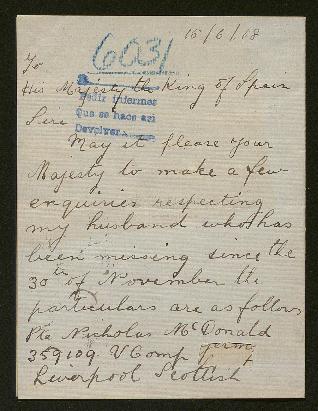 15/6/18
6031
To
His Majesty the King of Spain
Pedir informes
Que se hace así
Sire
Devolver
May it please Your
Majesty to make a few
enquiries respecting
my husband who has
been missing since the
30th of November the
particulars are as follows
Pte Nicholas McDonald
359109 V Comp
Liverpool Scottish